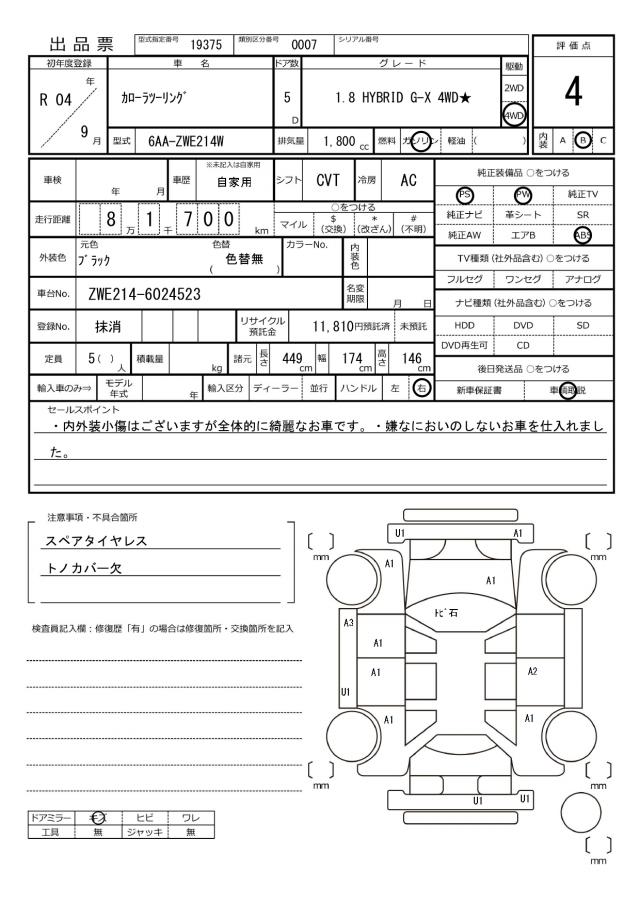 出品票 型式指定番号 19375 類別区分番号 0007 シリアル番号
評価点
4
内装 A B C
初年度登録 車名 ドア数 グレード 駆動
R 04 年 9 月 ｶﾛｰﾗﾂｰﾘﾝｸﾞ 5 D 1.8 HYBRID G-X 4WD★ 2WD 4WD
型式 6AA-ZWE214W 排気量 1,800 cc 燃料 ガソリン 軽油 ( )
車検 年 月 車歴 ※未記入は自家用 自家用 シフト CVT 冷房 AC
走行距離 8 万 1 千 7 0 0 km ○をつける
マイル $ (交換) * (改ざん) # (不明)
外装色 元色 ﾌﾞﾗｯｸ 色替 ( 色替無 ) カラーNo. 内装色
車台No. ZWE214-6024523 名変期限 月 日
登録No. 抹消 リサイクル預託金 11,810円預託済 未預託
定員 5 ( ) 人 積載量 kg 諸元 長さ 449 cm 幅 174 cm 高さ 146 cm
輸入車のみ⇒ モデル年式 年 輸入区分 ディーラー 並行 ハンドル 左 右
純正装備品 ○をつける
PS PW 純正TV
純正ナビ 革シート SR
純正AW エアB ABS
TV種類 (社外品含む) ○をつける
フルセグ ワンセグ アナログ
ナビ種類 (社外品含む) ○をつける
HDD DVD SD
DVD再生可 CD
後日発送品 ○をつける
新車保証書 車輌取説
セールスポイント
・内外装小傷はございますが全体的に綺麗なお車です。・嫌なにおいのしないお車を仕入れまし
た。
注意事項・不具合箇所
スペアタイヤレス
トノカバー欠
検査員記入欄：修復歴「有」の場合は修復箇所・交換箇所を記入
U1 A1
mm mm
A1
A1
ﾄﾋﾞ石
A3
A1
A1 A2
U1
A1 A1
mm mm
U1 U1
mm
ドアミラー キズ ヒビ ワレ
工具 無 ジャッキ 無